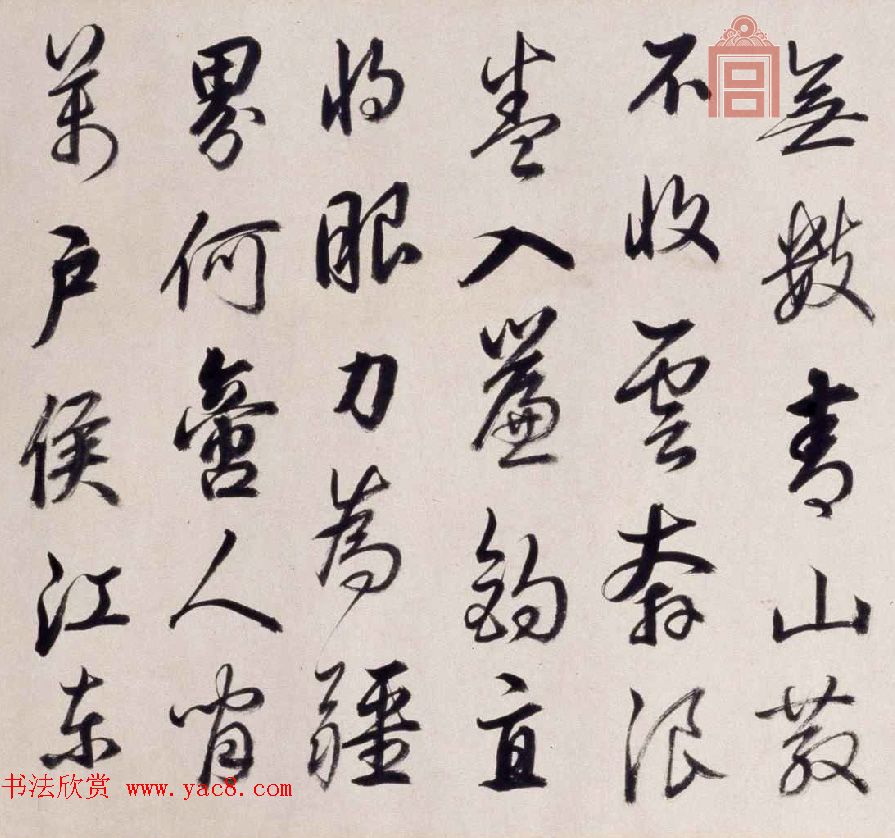 無數青山散
不收雲奔浪
卷入簾鉤直
將眼力為疆
界何啻人間
萬戶侯江東
书法欣赏 www.yac8.com